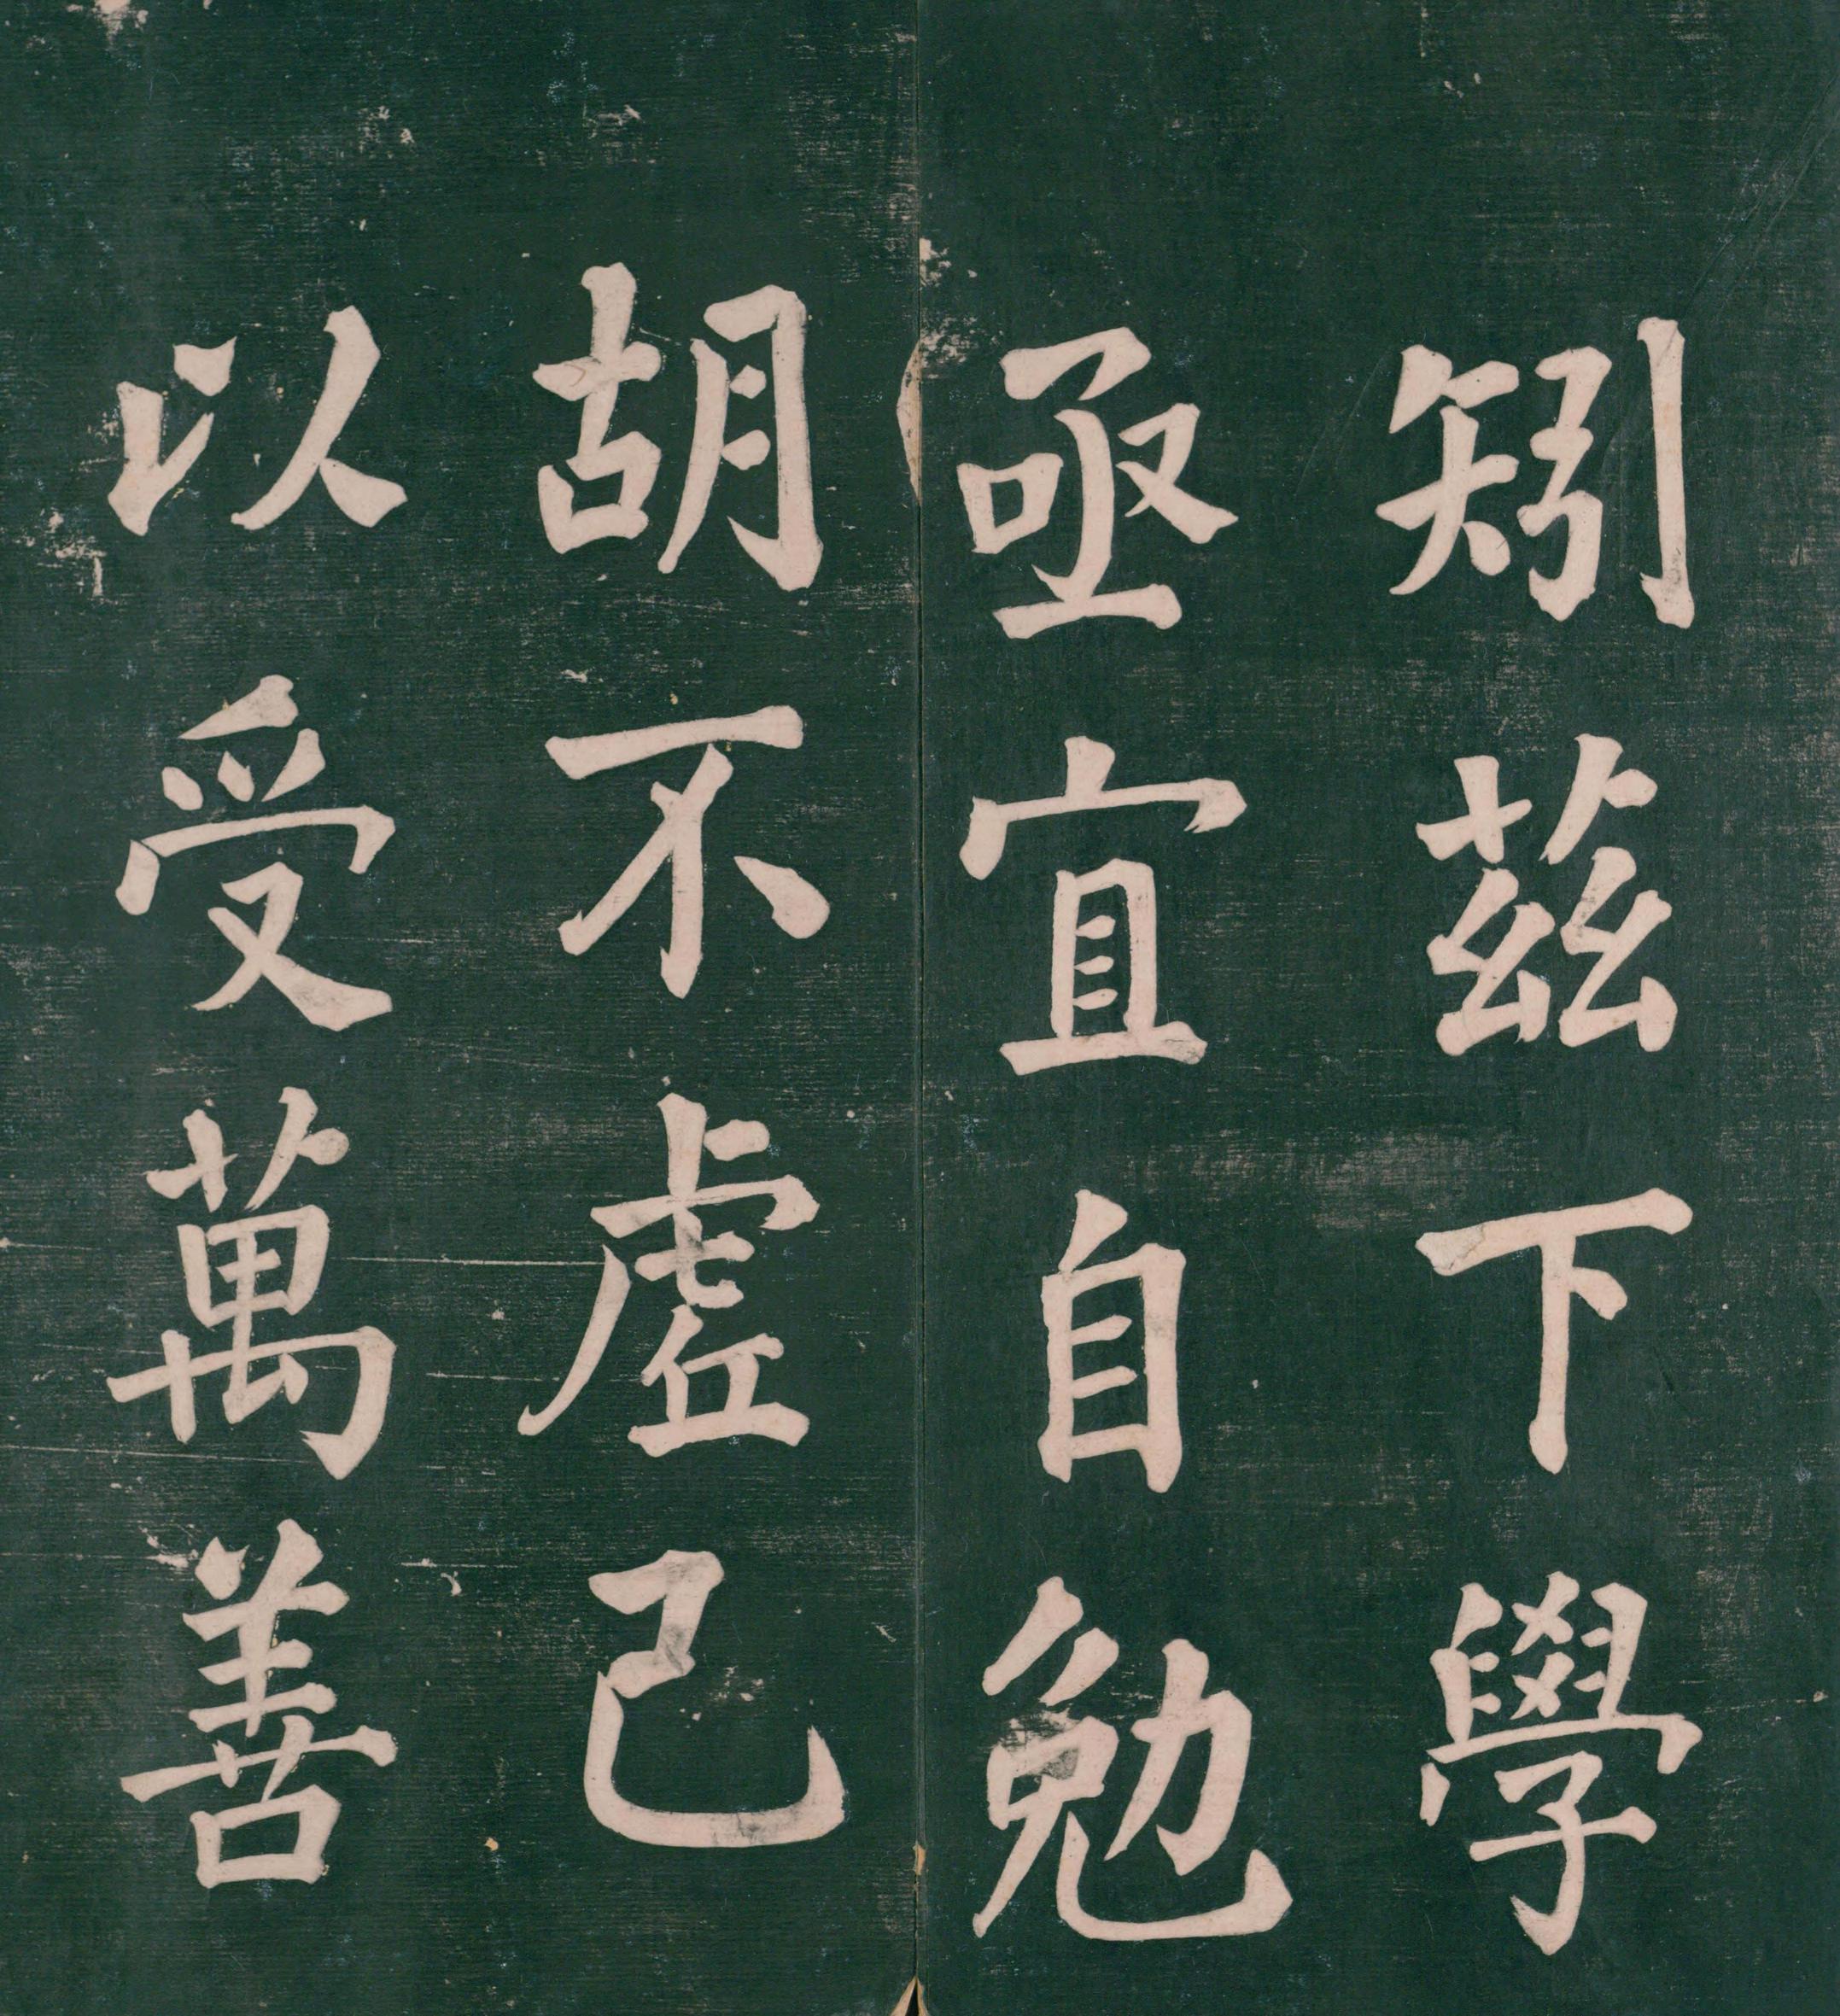 矧茲下學
亟宜自勉
胡不虛己
以受萬善